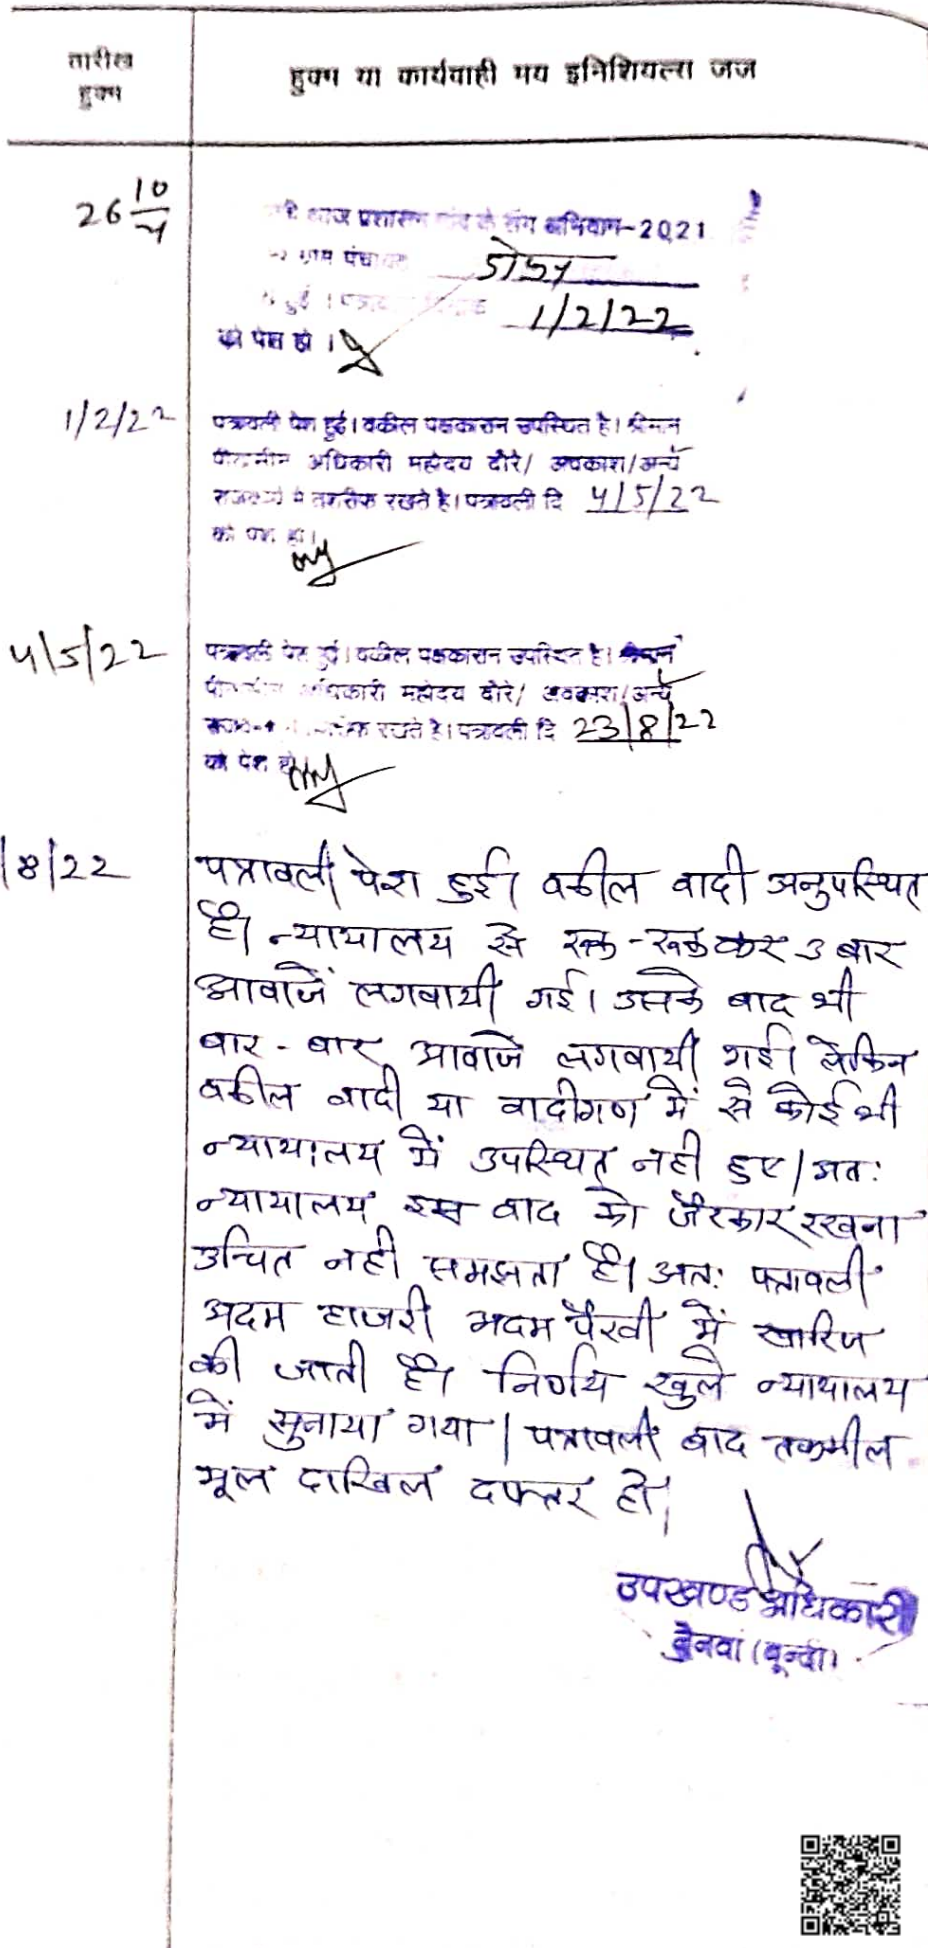 तारीख
हुक्म
हुक्म या कार्यवाही मय इनिशियल्स जज
26 10
आज प्रशासन गांव के संग अभियान-2021
ग्राम पंचायत
हुई । पत्रावली दिनांक 1/2/22
को पेश हो ।
1/2/22
पत्रावली पेश हुई। वकील पक्षकारान उपस्थित है। श्रीमान
पीठासीन अधिकारी महोदय दौरे/ अवकाश/अन्य
राजकार्य में तशरीफ रखते है। पत्रावली दि 4/5/22
को पेश हो।
4/5/22
पत्रावली पेश हुई। वकील पक्षकारान उपस्थित है। श्रीमान
पीठासीन अधिकारी महोदय दौरे/ अवकाश/अन्य
रखते है। पत्रावली दि 23/8/22
को पेश हो
/8/22
पत्रावली पेश हुई। वकील वादी अनुपस्थित
है। न्यायालय से रूक-रूककर 3 बार
आवाजें लगवायी गई। उसके बाद भी
बार-बार आवाजे लगवायी गई। लेकिन
वकील वादी या वादीगण में से कोई भी
न्यायालय में उपस्थित नही हुए। अतः
न्यायालय इस वाद को जैरकार रखना
उचित नही समझता है। अतः पत्रावली
अदम हाजरी अदम पैरवी में खारिज
की जाती है। निर्णय खुले न्यायालय
में सुनाया गया। पत्रावली बाद तकमील
मूल दाखिल दफ्तर हो।
उपखण्ड अधिकारी
नैनवां (बून्दी)